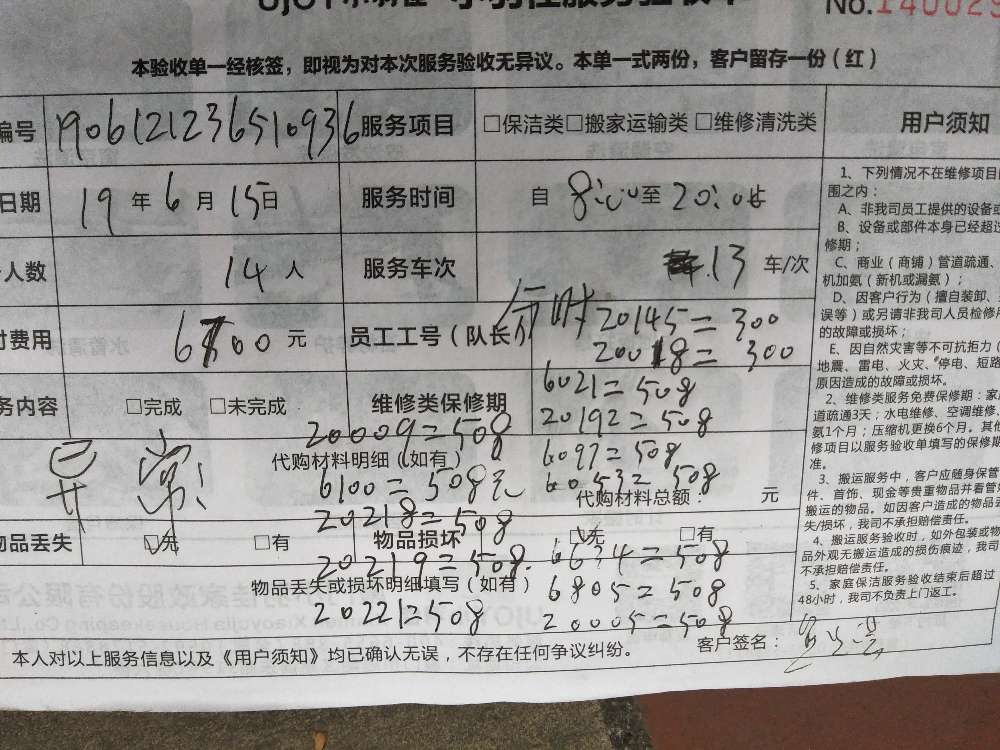 No.140029
本验收单一经核签，即视为对本次服务验收无异议。本单一式两份，客户留存一份（红）
编号 1906121236510936 服务项目 □保洁类□搬家运输类 □维修清洗类
日期 19 年 6 月 15 日 服务时间 自 8:00 至 20:00
人数 14 人 服务车次 13 车/次
付费用 6700 元 员工工号（队长 分时 20145=300
20018=300
务内容 □完成 □未完成 维修类保修期 6021=508
20192=508
20009=508
代购材料明细（如有） 6097=508
异常！
6100=508元 60532=508
代购材料总额： 元
20218=508
物品丢失 □无 □有 物品损坏 □无 □有
20219=508. 6634=508
物品丢失或损坏明细填写（如有） 6805=508
20221=508 20005=508
本人对以上服务信息以及《用户须知》均已确认无误，不存在任何争议纠纷。 客户签名：
用户须知
1、下列情况不在维修项目
围之内：
A、非我司员工提供的设备或
B、设备或部件本身已经超过
修期；
C、商业（商铺）管道疏通、
机加氨（新机或漏氨）；
D、因客户行为（擅自装卸、
误等）或另请非我司人员检修
的故障或损坏；
E、因自然灾害等不可抗拒力（
地震、雷电、火灾、停电、短路
原因造成的故障或损坏。
2、维修类服务免费保修期：家
道疏通3天；水电维修、空调维修、
氨1个月；压缩机更换6个月。其他
修项目以服务验收单填写的保修期
准。
3、搬运服务中，客户应随身保管
件、首饰、现金等贵重物品并看管
搬运的物品。如因客户造成的物品丢
失/损坏，我司不承担赔偿责任。
4、搬运服务验收时，如外包装或物
品外观无搬运造成的损伤痕迹，我司
不承担赔偿责任。
5、家庭保洁服务验收结束后超过
48小时，我司不负责上门返工。